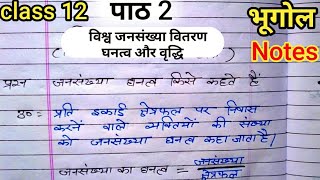 class 12 पाठ 2 भूगोल
विश्व जनसंख्या वितरण
घनत्व और वृद्धि
Notes
प्रश्न जनसंख्या घनत्व किसे कहते हैं
उ०= प्रति इकाई क्षेत्रफल पर निवास
करने वाले व्यक्तियों की संख्या
को जनसंख्या घनत्व कहा जाता है।
जनसंख्या का घनत्व = जनसंख्या
क्षेत्रफल